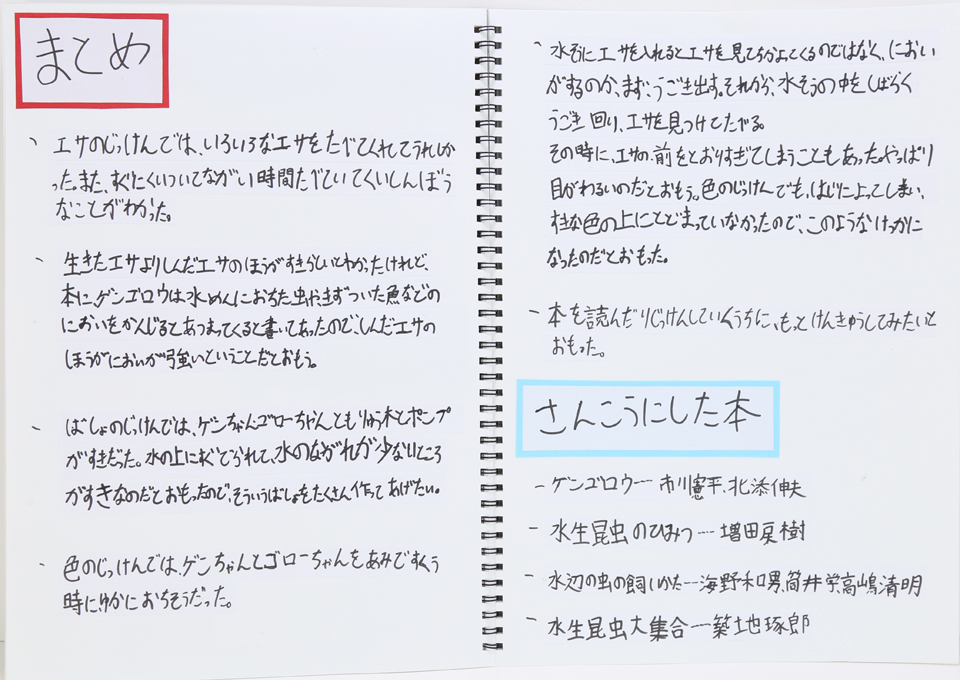 まとめ
、エサのじっけんでは、いろいろなエサをたべてくれてうれしか
った。また、すぐにくいついてながい時間たべていてくいしんぼう
なことがわかった。
、生きたエサよりしんだエサのほうがすきらしいとわかったけれど、
本に、ゲンゴロウは水めんにおちた虫やきずついた魚などの
においをかんじるとあつまってくると書いてあったので、しんだエサの
ほうがにおいが強いということだとおもう。
、ばしょのじっけんでは、ゲンちゃんゴローちゃんともりゅう木とポンプ
がすきだった。水の上にすぐでられて、水のながれが少ないところ
がすきなのだとおもったので、そういうばしょをたくさん作ってあげたい。
、色のじっけんでは、ゲンちゃんとゴローちゃんをあみですくう
時にゆかにおちそうだった。
、水そうにエサを入れるとエサを見てちかよってくるのではなく、におい
がするのか、まず、うごき出す。それから、水そうの中をしばらく
うごき回り、エサを見つけてたべる。
その時に、エサの前をとおりすぎてしまうこともあった。やっぱり
目がわるいのだとおもう。色のじっけんでも、はじによってしまい、
すきな色の上にとどまっていなかったので、このようなけっかに
なったのだとおもった。
、本を読んだりじっけんしていくうちに、もっとけんきゅうしてみたいと
おもった。
さんこうにした本
-ゲンゴロウ---市川憲平、北添伸夫
-水生昆虫のひみつ---増田戻樹
-水辺の虫の飼いかた---海野和男、筒井学、高嶋清明
-水生昆虫大集合---築地琢郎